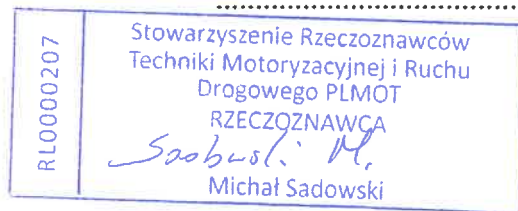 RL0000207
Stowarzyszenie Rzeczoznawców
Techniki Motoryzacyjnej i Ruchu
Drogowego PLMOT
RZECZOZNAWCA
Sadowski M.
Michał Sadowski